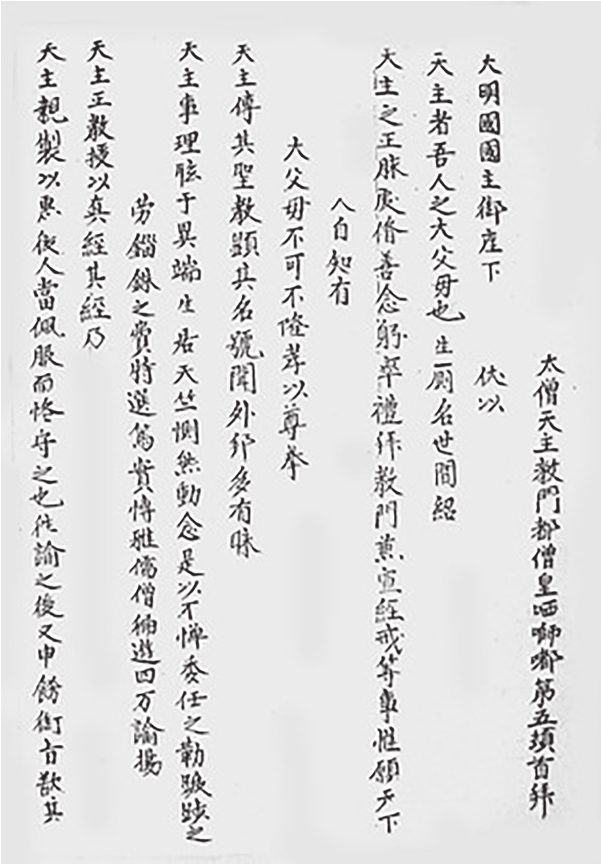 太僧天主教門都僧皇哂嘟第五頊首拜
大明國國主御座下 伏以
天主者吾人之大父母也生厠名世間紹
天主之正脉虔脩善念躬率禮拜教門薫宣經戒等事惟願天下
人自知有
大父母不可不隆孝以尊奉
天主傳其聖教顕其名號聞外邦多有昧
天主事理眩于異端生居天竺惻然動念是以不憚委任之勤跋跡之
労錙銖之費特選篤實博雅儒僧徧遊四方諭揚
天主正教授以真經其經乃
天主親製以惠後人當佩服而恪守之也徃諭之後又申餙銜旨歃其